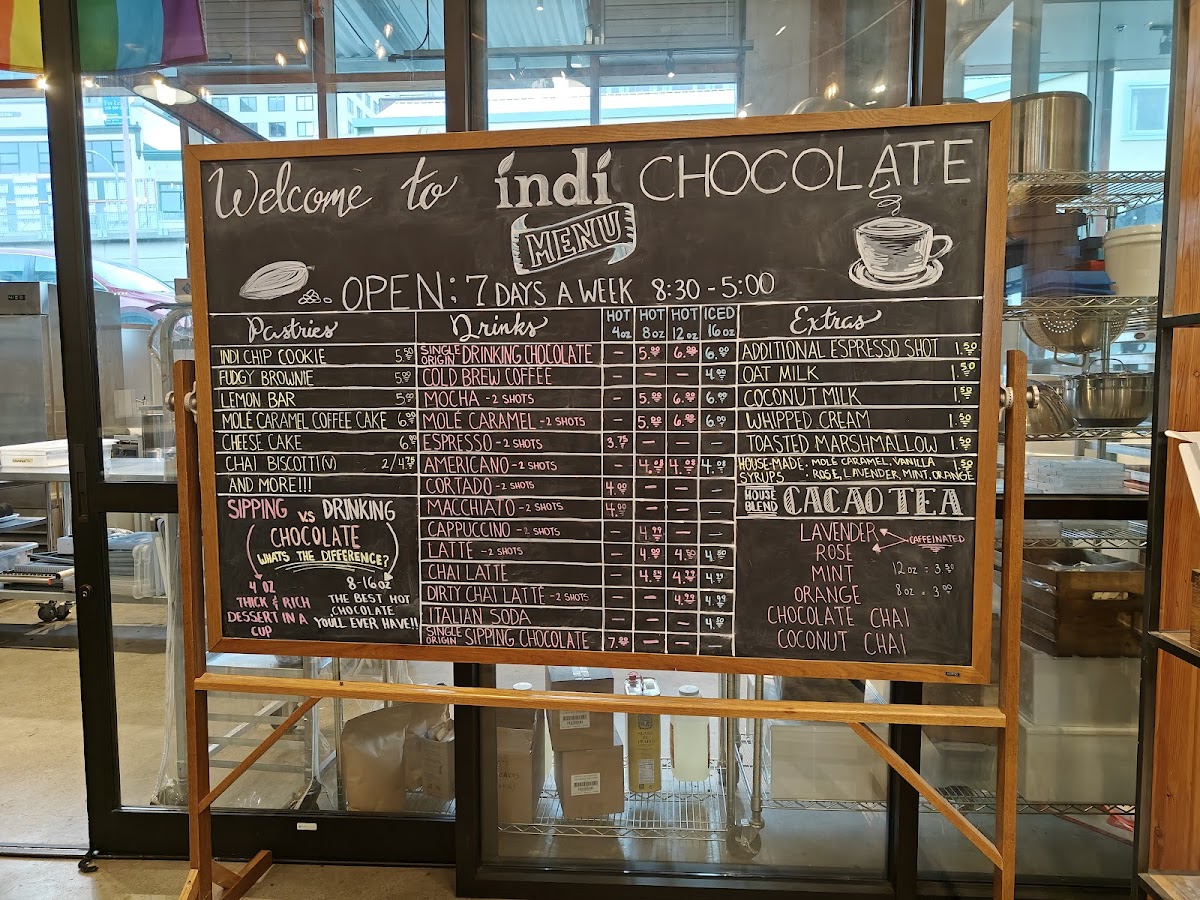 Welcome to indi CHOCOLATE
MENU
OPEN: 7 DAYS A WEEK 8:30 - 5:00
Pastries
INDI CHIP COOKIE 5.00
FUDGY BROWNIE 5.00
LEMON BAR 5.00
MOLÉ CARAMEL COFFEE CAKE 6.00
CHEESE CAKE
CHAI BISCOTTI (V) 2/4.75
AND MORE!!!
SIPPING V.S DRINKING
CHOCOLATE
WHATS THE DIFFERENCE?
4 OZ
THICK & RICH
DESSERT IN A
CUP
8-16 OZ
THE BEST HOT
CHOCOLATE
YOU'LL EVER HAVE!!
Drinks HOT 4oz HOT 8oz HOT 12oz ICED 16oz
SINGLE ORIGIN DRINKING CHOCOLATE -
COLD BREW COFFEE - - -
MOCHA - 2 SHOTS -
MOLÉ CARAMEL - 2 SHOTS -
ESPRESSO - 2 SHOTS 3.75 - - -
AMERICANO - 2 SHOTS -
CORTADO - 2 SHOTS 4.00 - - -
MACCHIATO - 2 SHOTS 4.00 - - -
CAPPUCCINO - 2 SHOTS - - -
LATTE - 2 SHOTS - 4.50
CHAI LATTE -
DIRTY CHAI LATTE - 2 SHOTS - -
ITALIAN SODA - - - 4.50
SINGLE ORIGIN SIPPING CHOCOLATE - - -
Extras
ADDITIONAL ESPRESSO SHOT 1.50
OAT MILK 1.50
COCONUT MILK 1.50
WHIPPED CREAM 1.50
TOASTED MARSHMALLOW 1.50
HOUSE-MADE : MOLÉ CARAMEL, VANILLA 1.50
SYRUPS : ROSE, LAVENDER, MINT, ORANGE
HOUSE BLEND CACAO TEA
LAVENDER
ROSE
CAFFEINATED
MINT
ORANGE
12 oz = 3.50
8 oz = 3.00
CHOCOLATE CHAI
COCONUT CHAI